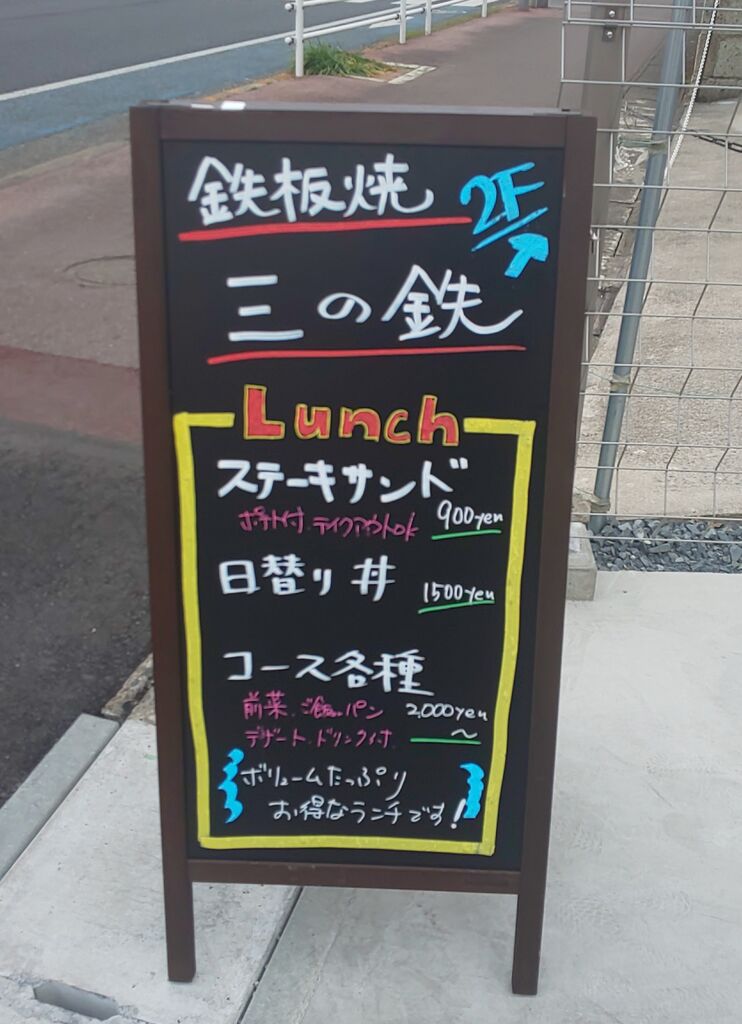 鉄板焼 2F
三の鉄
Lunch
ステーキサンド
ポテト付 テイクアウトok 900yen
日替り丼
1500yen
コース各種
前菜、ご飯orパン 2,000yen
デザート、ドリンク付 〜
ボリュームたっぷり
お得なランチです!